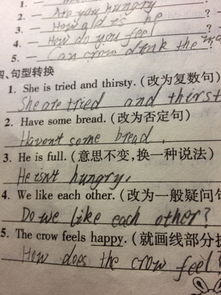 2. Are you hungry
3. How old is he ?
4. How do you feel
5. can crow drink the
四、句型转换
1. She is tried and thirsty. (改为复数句)
She are tried and thirst
2. Have some bread. (改为否定句)
Haven't some bread.
3. He is full. (意思不变,换一种说法)
He isn't hungry.
4. We like each other. (改为一般疑问句
Do we like each other?
5. The crow feels happy. (就画线部分提
How does the crow feel?